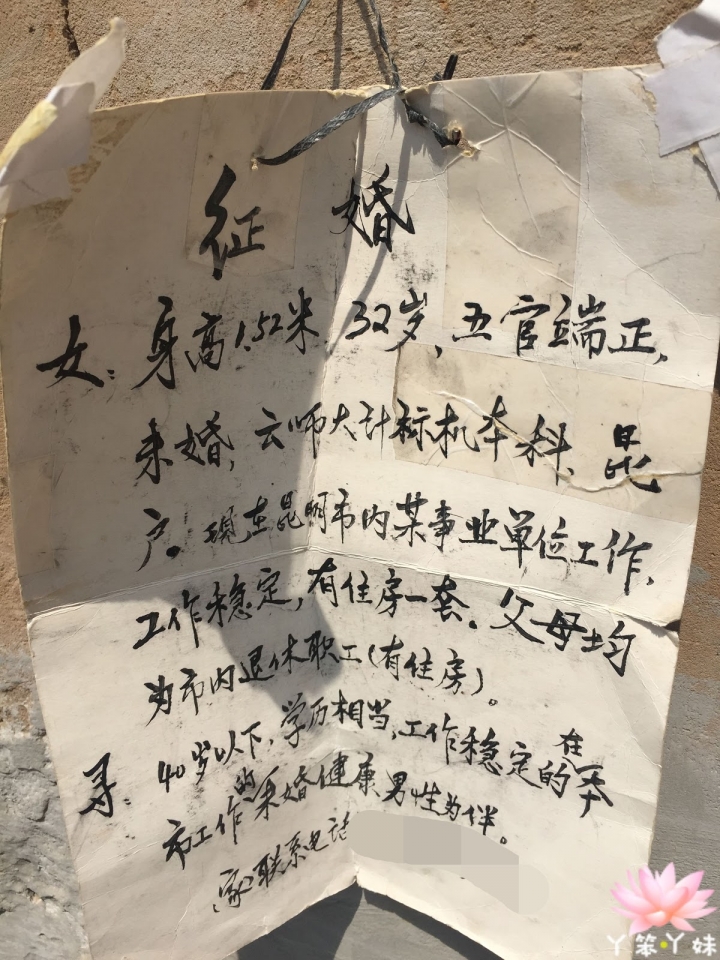 征婚
女：身高1.52米，32岁，五官端正，
未婚，云师大计标机本科、昆
户。现在昆明市内某事业单位工作，
工作稳定，有住房一套。父母均
为市内退休职工（有住房）。
寻：40岁以下，学历相当，工作稳定的在本
市工作的未婚健康男性为伴。
联系电话
丫笨·丫妹